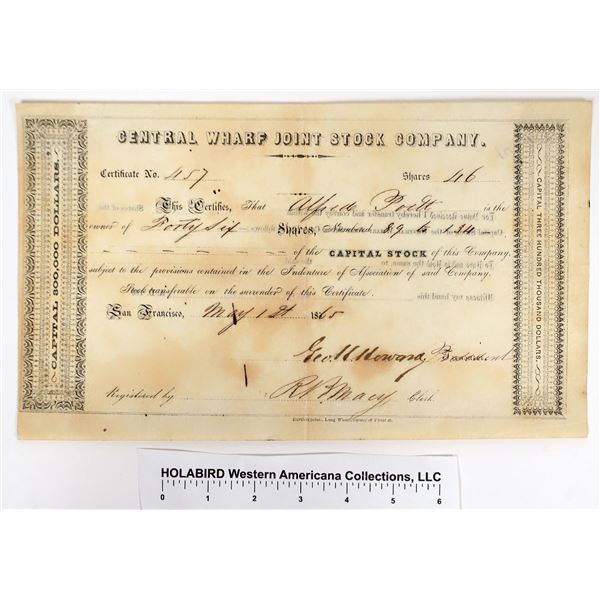 CENTRAL WHARF JOINT STOCK COMPANY.
Certificate No. 457 Shares 46
This Certifies, That Alfred
is the
owner of Forty Six Shares, Numbered 89 to 134
of the CAPITAL STOCK of this Company,
subject to the provisions contained in the Indenture of Association of said Company.
Stock transferable on the surrender of this Certificate.
San Francisco, May 1st 1865
Geo. H. Howard President
Registered by R. Macy Clerk.
CAPITAL 300,000 DOLLARS.
CAPITAL THREE HUNDRED THOUSAND DOLLARS.
HOLABIRD Western Americana Collections, LLC
0 1 2 3 4 5 6